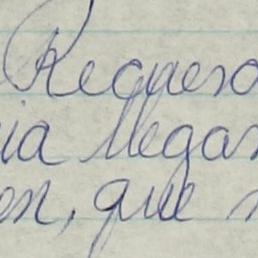 Recuerd
ia llegar
en, que